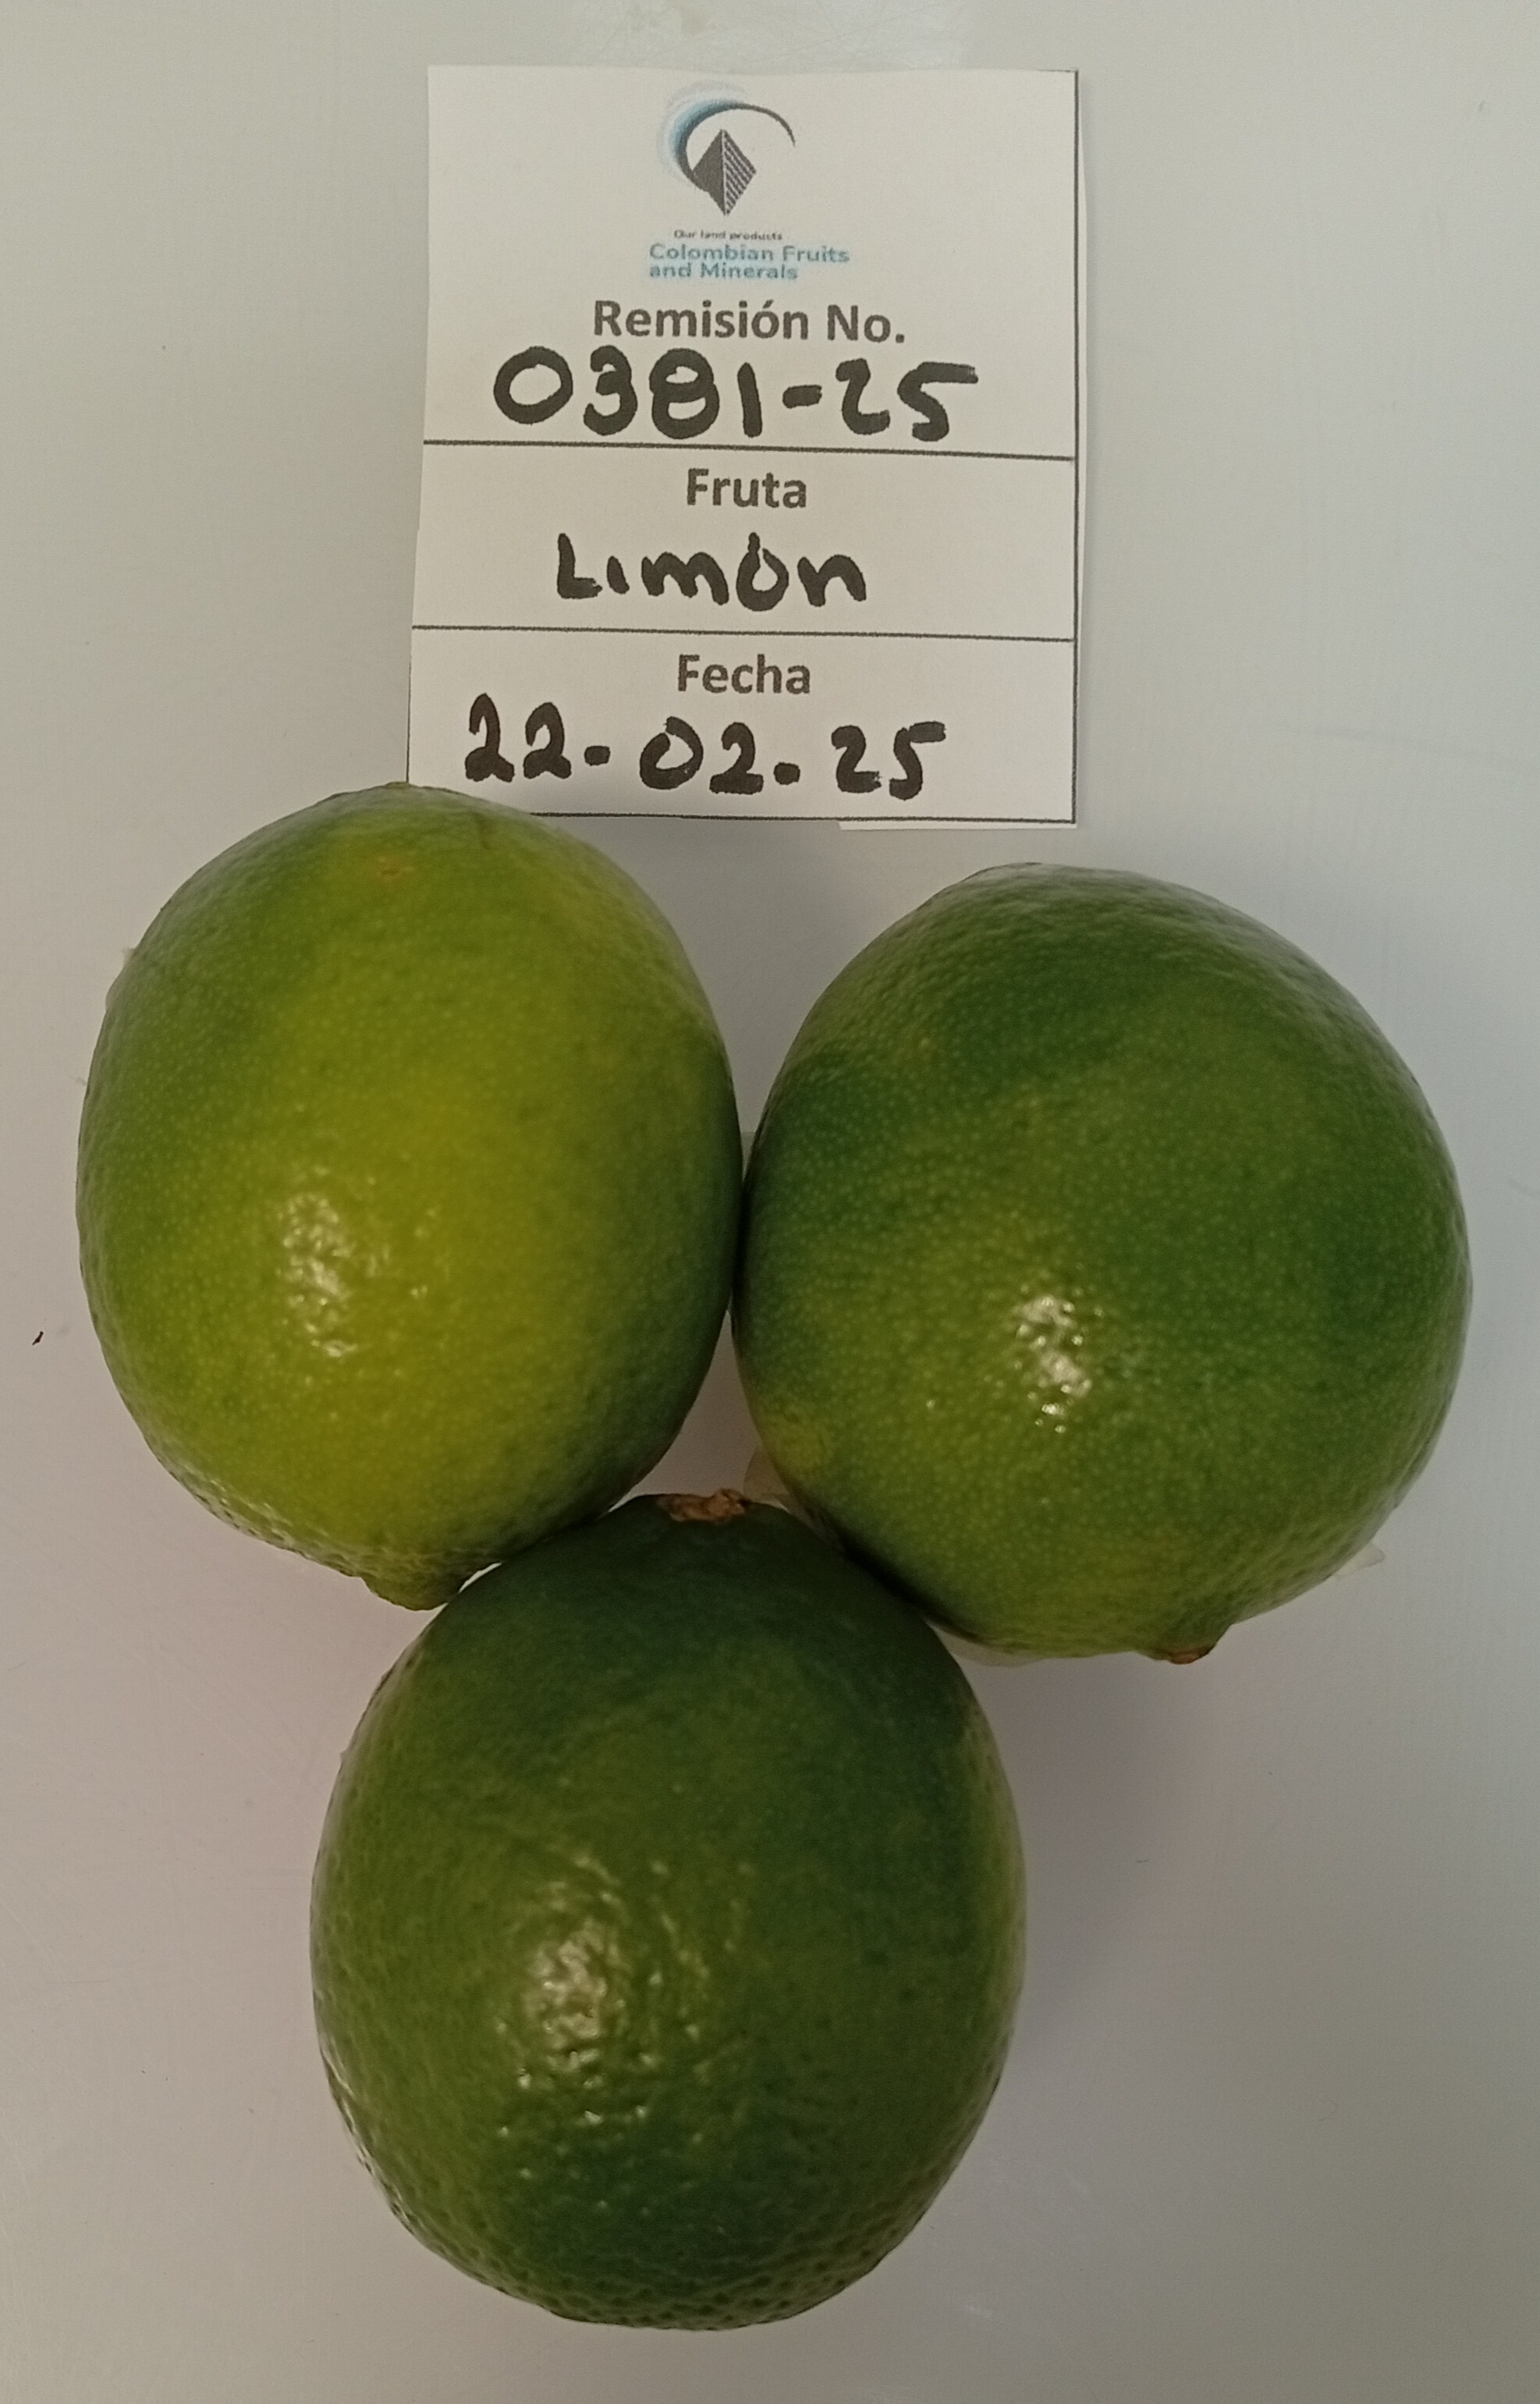 Our land products
Colombian Fruits
and Minerals
Remisión No.
0381-25
Fruta
Limón
Fecha
22-02-25